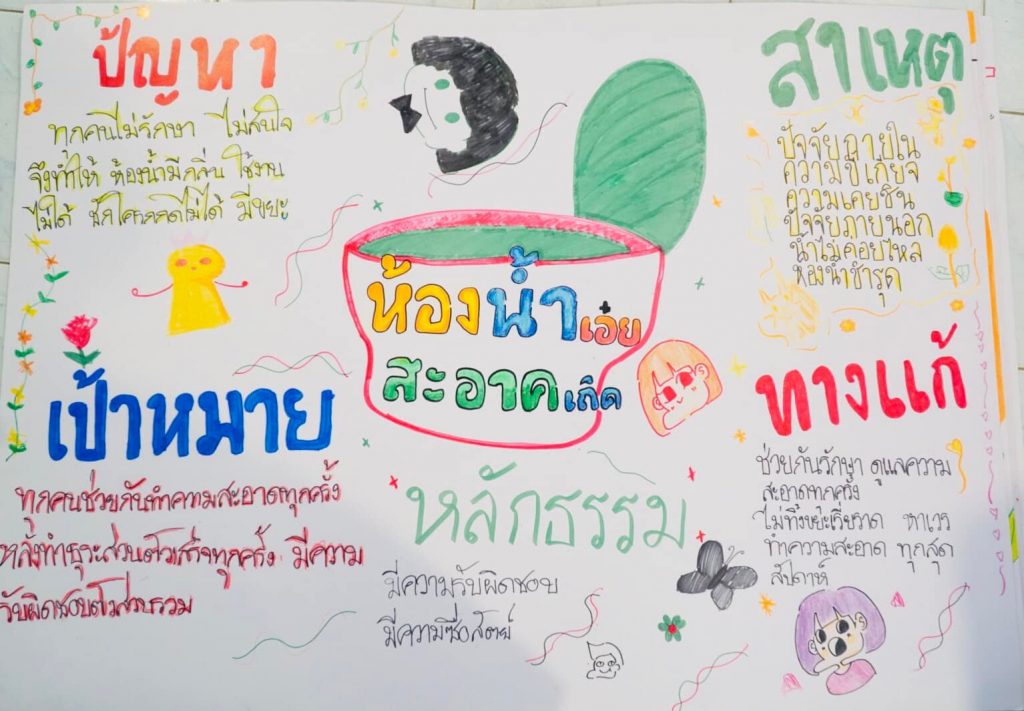 ปัญหา
ทุกคนไม่รักษา ไม่สนใจ
จึงทำให้ ห้องน้ำมีกลิ่น ใช้งาน
ไม่ได้ ชักโครกกดไม่ได้ มีขยะ
สาเหตุ
ปัจจัยภายใน
ความขี้เกียจ
ความเคยชิน
ปัจจัยภายนอก
น้ำไม่ค่อยไหล
ห้องน้ำชำรุด
ห้องน้ำเอ๋ย
สะอาดเถิด
เป้าหมาย
ทุกคนช่วยกันทำความสะอาดทุกครั้ง
หลังทำธุระส่วนตัวเสร็จทุกครั้ง มีความ
รับผิดชอบต่อส่วนรวม
หลักธรรม
มีความรับผิดชอบ
มีความซื่อสัตย์
ทางแก้
ช่วยกันรักษา ดูแลความ
สะอาดทุกครั้ง
ไม่ทิ้งขยะเรี่ยราด หาเวร
ทำความสะอาด ทุกสุด
สัปดาห์